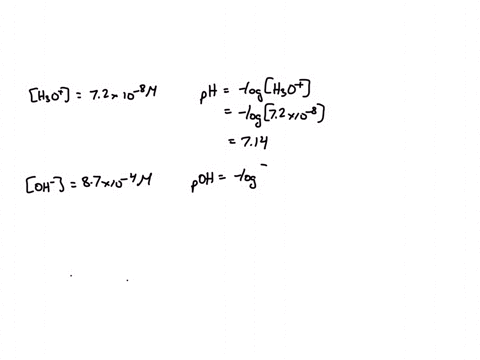 [H₃O⁺] = 7.2 × 10⁻⁸ M pH = -log[H₃O⁺]
= -log[7.2 × 10⁻⁸]
= 7.14
[OH⁻] = 8.7 × 10⁻⁴ M pOH = -log